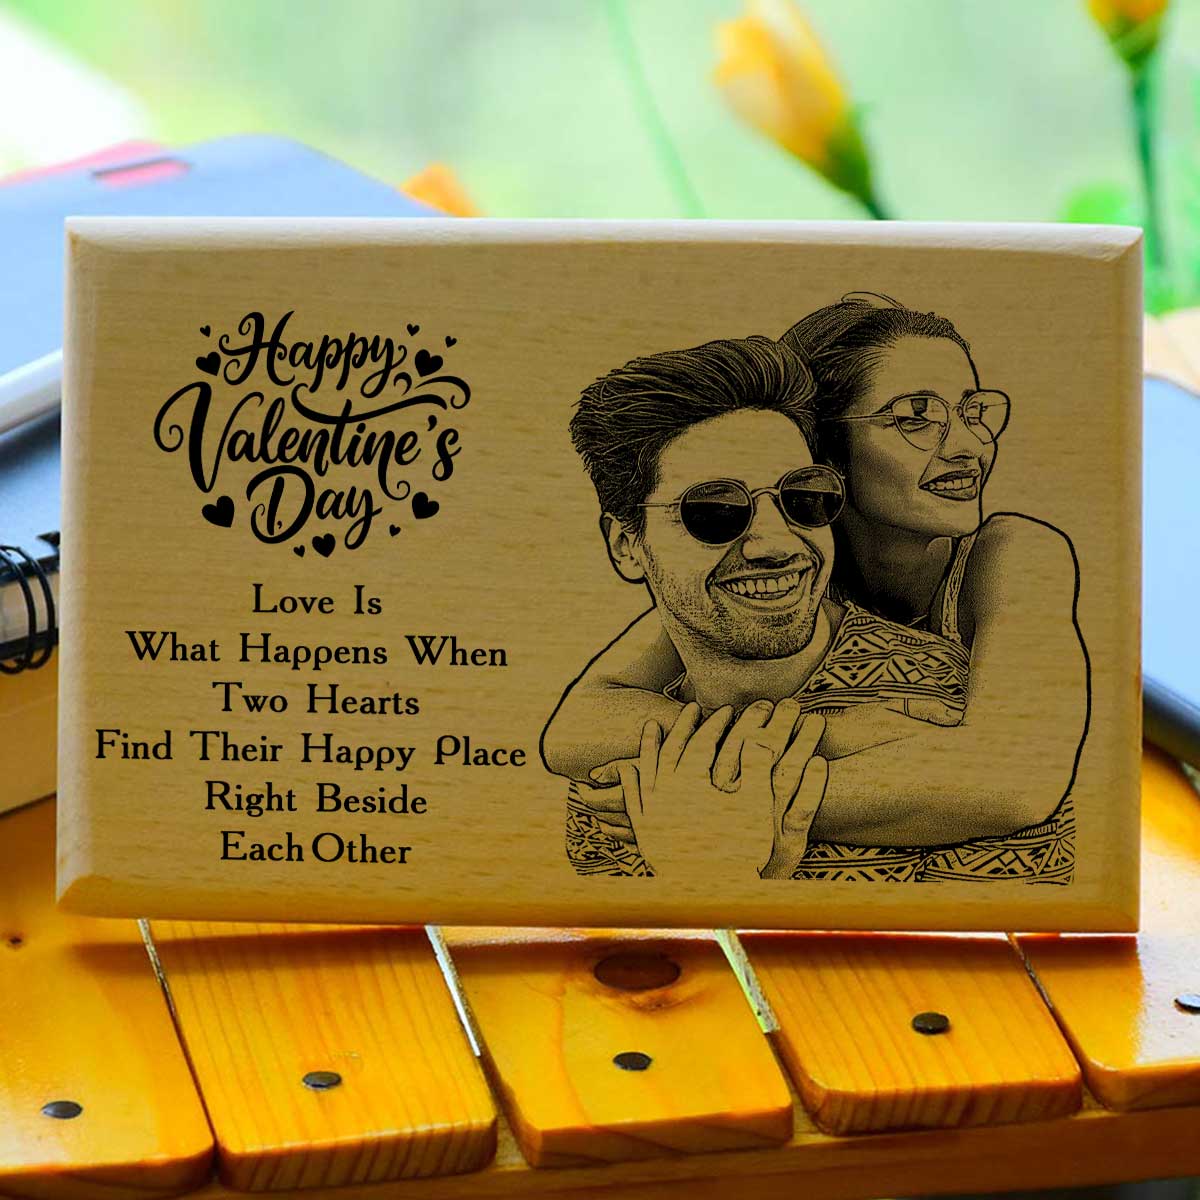 Happy
Valentine's
Day
Love Is
What Happens When
Two Hearts
Find Their Happy Place
Right Beside
Each Other